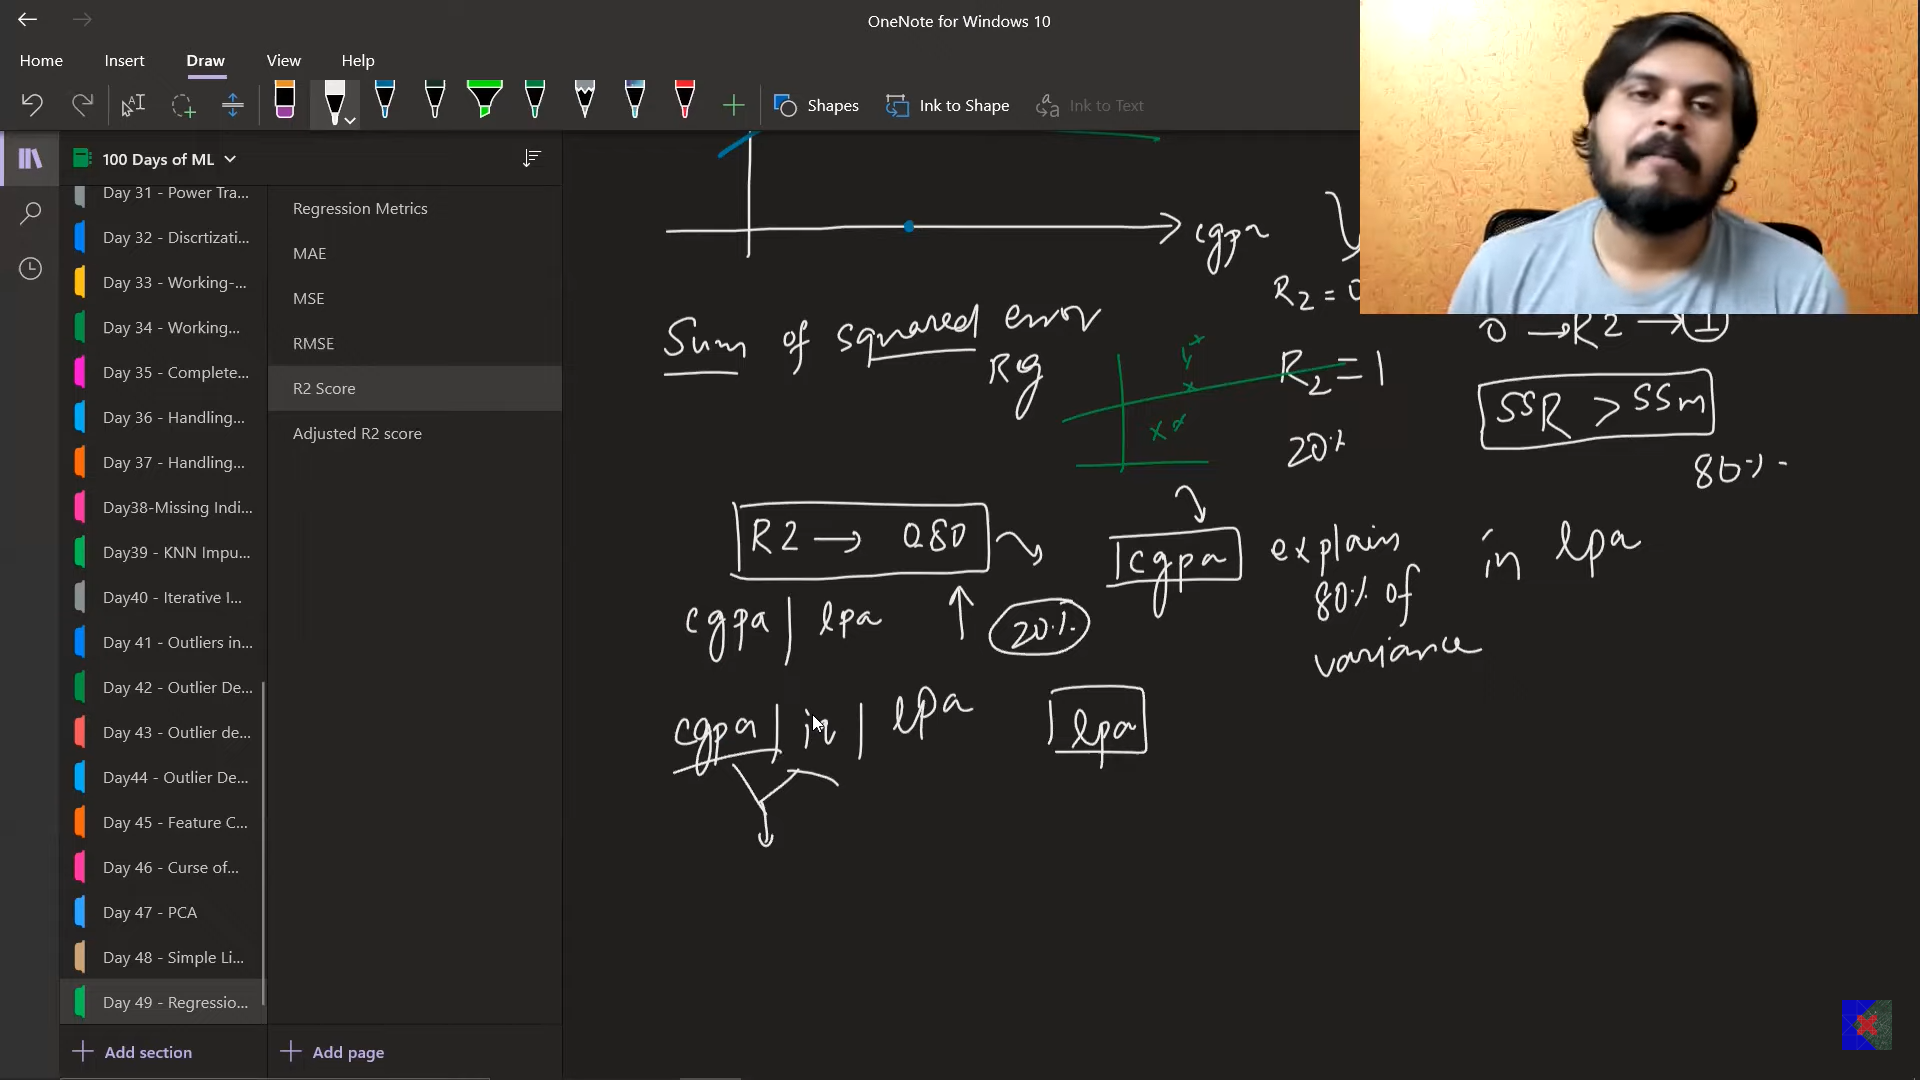 OneNote for Windows 10
Home Insert Draw View Help
Shapes Ink to Shape Ink to Text
100 Days of ML
Day 31 - Power Tra...
Day 32 - Discrtizati...
Day 33 - Working-...
Day 34 - Working...
Day 35 - Complete...
Day 36 - Handling...
Day 37 - Handling...
Day38-Missing Indi...
Day39 - KNN Impu...
Day40 - Iterative I...
Day 41 - Outliers in...
Day 42 - Outlier De...
Day 43 - Outlier de...
Day44 - Outlier De...
Day 45 - Feature C...
Day 46 - Curse of...
Day 47 - PCA
Day 48 - Simple Li...
Day 49 - Regressio...
Add section
Regression Metrics
MAE
MSE
RMSE
R2 Score
Adjusted R2 score
Add page
cgpa
R2 = 0
Sum of squared error
Rg
0 → R2 → 1
R2 = 1
SSR > SSm
20%
80%
R2 → 0.80
cgpa explain
80% of
variance
in lpa
cgpa | lpa
20%
cgpa | in | lpa
lpa